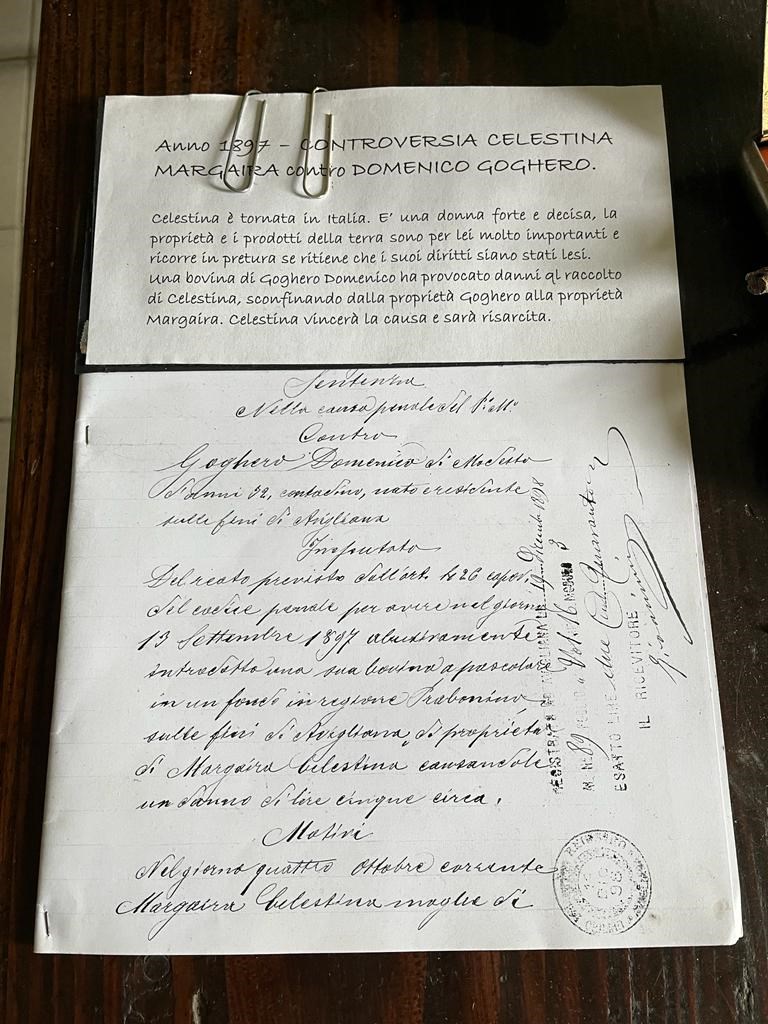 Anno 1897 - CONTROVERSIA CELESTINA
MARGAIRA contro DOMENICO GOGHERO.
Celestina è tornata in Italia. E' una donna forte e decisa, la
proprietà e i prodotti della terra sono per lei molto importanti e
ricorre in pretura se ritiene che i suoi diritti siano stati lesi.
Una bovina di Goghero Domenico ha provocato danni ql raccolto
di Celestina, sconfinando dalla proprietà Goghero alla proprietà
Margaira. Celestina vincerà la causa e sarà risarcita.
Sentenza
Nella causa penale del P. M.
Contro
Goghero Domenico di Modesto
d'anni 32, contadino, nato e residente
sulle fini di Avigliana
Imputato
Del reato previsto dall'art. 426 capov.
del codice penale per avere nel giorno
13 Settembre 1897 abusivamente
introdotto una sua bovina a pascolare
in un fondo in regione
sulle fini di Avigliana, di proprietà
di Margaira Celestina causandole
un danno di lire cinque circa.
Motivi
Nel giorno quattro Ottobre corrente
Margaira Celestina moglie di
REGISTRATA AD AVIGLIANA LI 19 1898
M. N. 89 Vol. 16 MODULO 3
ESATTO LIRE due Quaranta
IL RICEVITORE